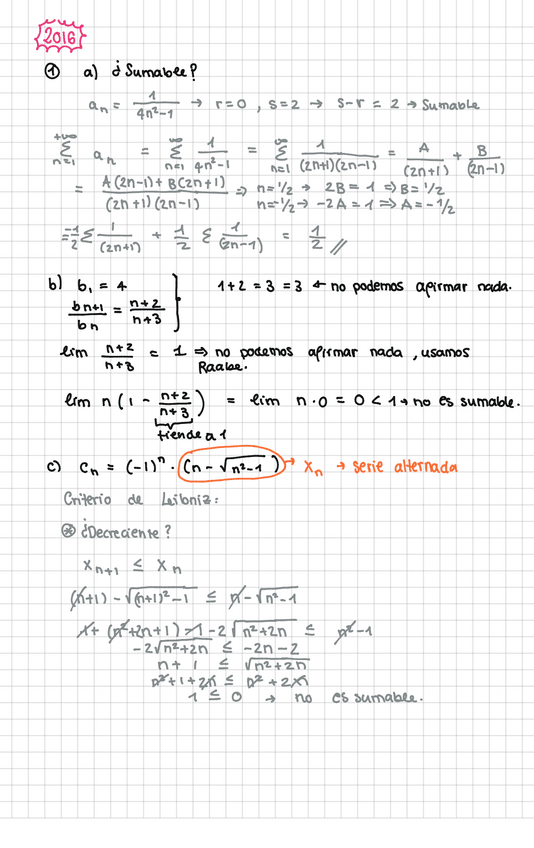 2016
① a) ¿Sumable?
a_n = 1/(4n²-1) → r=0 , s=2 → s-r = 2 → Sumable
+∞ Σ n=1 a_n = ∞ Σ n=1 1/(4n²-1) = ∞ Σ n=1 1/((2n+1)(2n-1)) = A/(2n+1) + B/(2n-1)
= (A(2n-1)+B(2n+1))/((2n+1)(2n-1)) ⇒ n=1/2 → 2B = 1 ⇒ B=1/2
n=-1/2 → -2A = 1 ⇒ A=-1/2
= -1/2 Σ 1/(2n+1) + 1/2 Σ 1/(2n-1) = 1/2 //
b) b₁ = 4
b_n+1/b_n = (n+2)/(n+3) } 1+2 = 3 = 3 ← no podemos afirmar nada.
lim (n+2)/(n+3) = 1 ⇒ no podemos afirmar nada , usamos
Raabe.
lim n (1 - (n+2)/(n+3)) = lim n·0 = 0 < 1 → no es sumable.
tiende a 1
c) c_n = (-1)^n · (n - √(n²-1)) → x_n → serie alternada
Criterio de Leibniz:
⊛ ¿Decreciente?
x_n+1 ≤ x_n
(n+1) - √((n+1)²-1) ≤ n - √(n²-1)
1 + (n²+2n+1) - 1 - 2√(n²+2n) ≤ n²-1
-2√(n²+2n) ≤ -2n-2
n + 1 ≤ √(n²+2n)
n²+1+2n ≤ n²+2n
1 ≤ 0 → no es sumable.